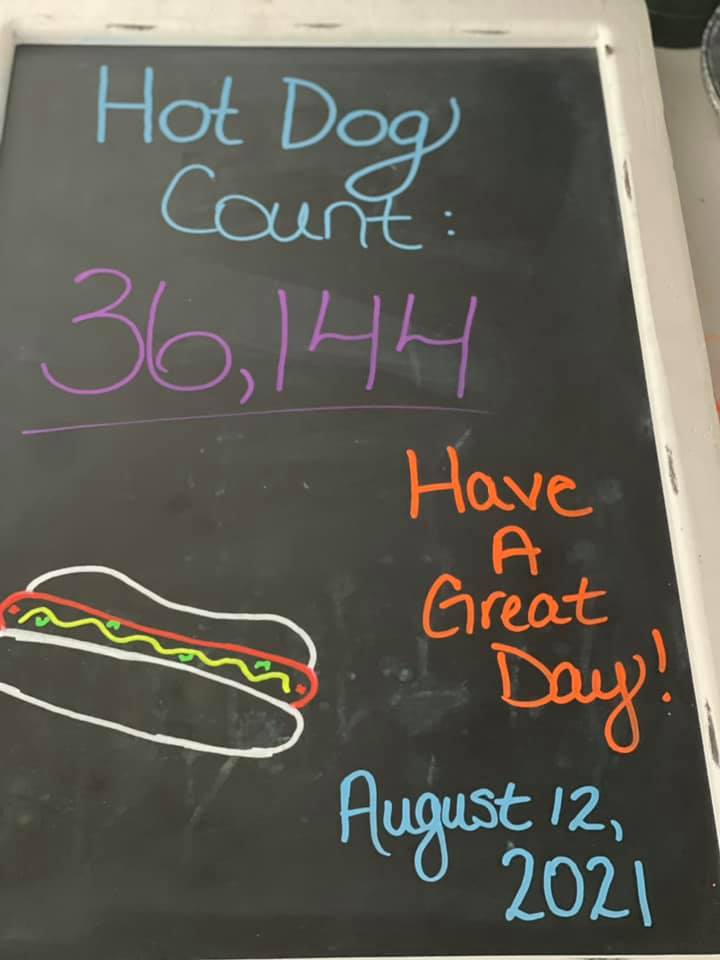 Hot Dog
Count:
36,144
Have
A
Great
Day!
August 12,
2021